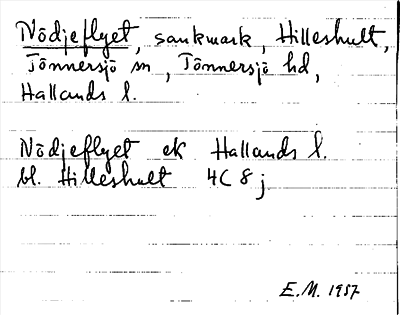 Nödjeflyet, sankmark, Hilleshult,
Tönnersjö sn, Tönnersjö hd,
Hallands l.
Nödjeflyet ek Hallands l.
bl. Hilleshult 4C 8 j
E.M. 1957